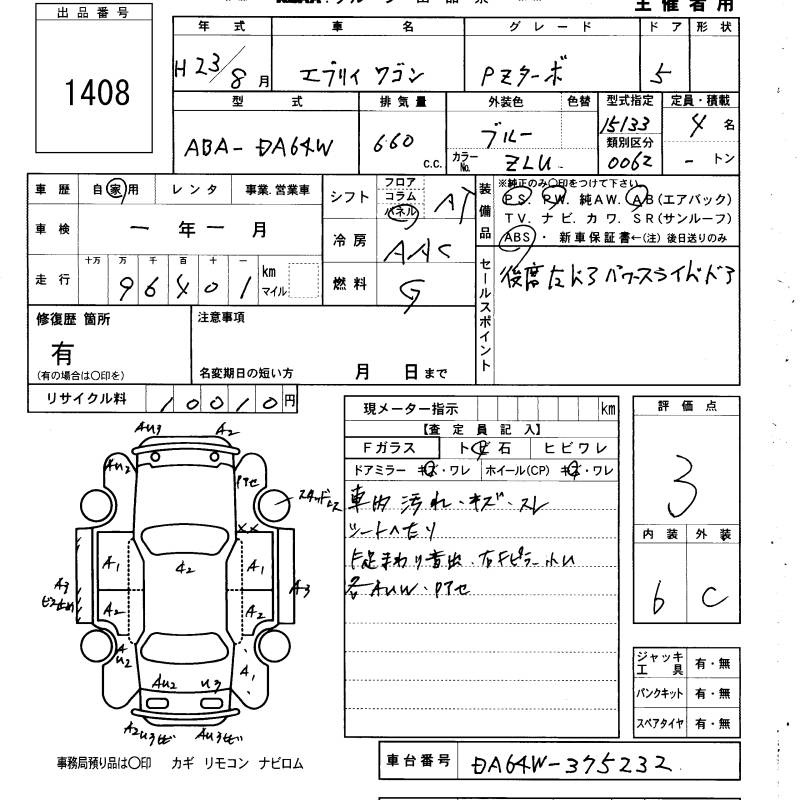 出品番号
1408
主催者用
年式 車名 グレード ドア 形状
H23/8月 エブリィ ワゴン PZターボ 5
型式 排気量 外装色 色替 型式指定 定員・積載
ABA-DA64W 660 c.c. ブルー 15133 4名
カラーNo. ZLU 類別区分 0062 -トン
車歴 自家用 レンタ 事業.営業車
車検 一年一月
走行 十万 万 千 百 十 一 km マイル
96401
シフト フロア コラム パネル AT
冷房 AAC
燃料 G
装備品 ※純正のみ〇印をつけて下さい
PS. PW. 純AW. AB(エアバック)
TV. ナビ. カワ. SR(サンルーフ)
ABS・新車保証書←(注)後日送りのみ
セールスポイント
後席左ドア パワースライドドア
修復歴 箇所
有
(有の場合は〇印を)
注意事項
名変期日の短い方 月 日まで
リサイクル料 10010円
現メーター指示 km
【査定員記入】
Fガラス トビ石 ヒビワレ
ドアミラー キズ・ワレ ホイール(CP) キズ・ワレ
車内 汚れ・キズ・スレ
シートへたり
下まわり
各AUW・Pアセ
評価点
3
内装 外装
6 C
ジャッキ工具 有・無
パンクキット 有・無
スペアタイヤ 有・無
AU3 A2
AU2 Pアセ
XX
A1 A2 A1
A3 A3
A2 A2
AU2 A1
AU2 U3
A2U3ヒビ AU3ヒビ
事務局預り品は〇印 カギ リモコン ナビロム
車台番号 DA64W-375232